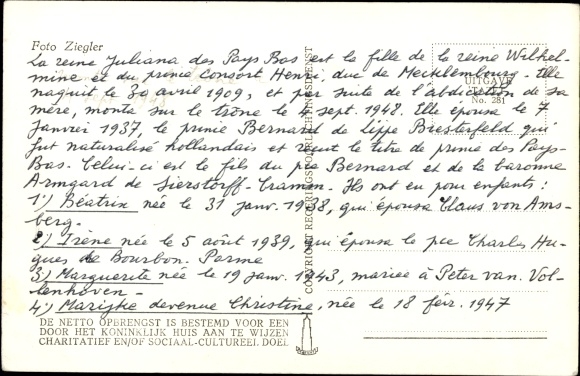 Foto Ziegler
La reine Juliana des Pays Bas est la fille de la reine Wilhel-
mine et du prince consort Henri, duc de Mecklembourg. Elle
naquit le 30 avril 1909, et par suite de l'abdication de sa
mère, monta sur le trône le 4 sept. 1948. Elle épousa le 7
Janvier 1937, le prince Bernard de Lippe Biesterfeld qui
fut naturalisé hollandais et reçut le titre de prince des Pays-
Bas. Celui-ci est le fils du pce Bernard et de la baronne
Armgard de Sierstorff-Cramm. Ils ont eu pour enfants :
1°) Béatrix née le 31 janv. 1938, qui épousa Claus von Ams-
berg.
2°) Irène née le 5 août 1939, qui épousa le pce Charles Hu-
gues de Bourbon. Parme
3°) Marguerite née le 19 janv. 1943, mariée à Peter van. Vol-
lenhoven -
4°) Marijke devenue Christine, née le 18 févr. 1947
UITGAVE
No. 281
COPYRIGHT REGERINGSVOORLICHTINGSDIENST
DE NETTO OPBRENGST IS BESTEMD VOOR EEN
DOOR HET KONINKLIJK HUIS AAN TE WIJZEN
CHARITATIEF EN/OF SOCIAAL-CULTUREEL DOEL